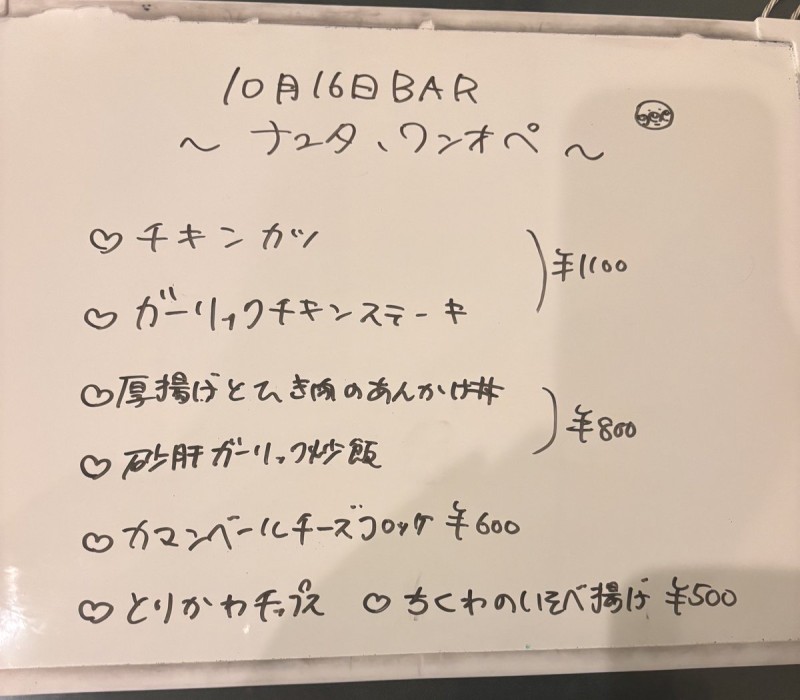 10月16日BAR
～ナユタ、ワンオペ～
♡チキンカツ
♡ガーリックチキンステーキ
¥1100
♡厚揚げとひき肉のあんかけ丼
♡砂肝ガーリック炒飯
¥800
♡カマンベールチーズコロッケ ¥600
♡とりかわチップス ♡ちくわのいそべ揚げ ¥500